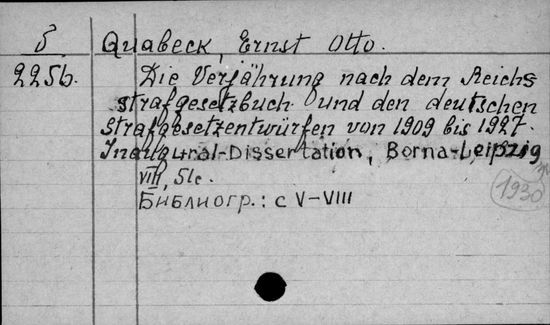 б Quabeck, Ernst Otto.
225б. Die Verjährung nach dem Reichs
strafgesetzbuch und den deutschen
Strafgesetzentwürfen von 1909 bis 1927.
Inaugural-Dissertation, Borna-Leipzig
VIII, 51c.
1930
Библиогр.: с V-VIII